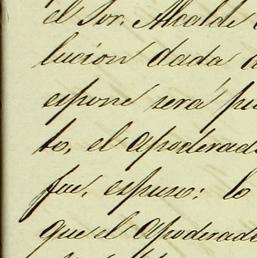 el Sor. Alcalde
lucion dada
espone será
to, el Apoderado
fué, espuso: lo
que el Apoderado